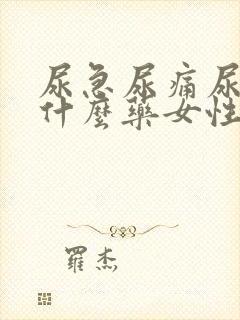 尿急尿痛尿
什麼藥女性
羅杰